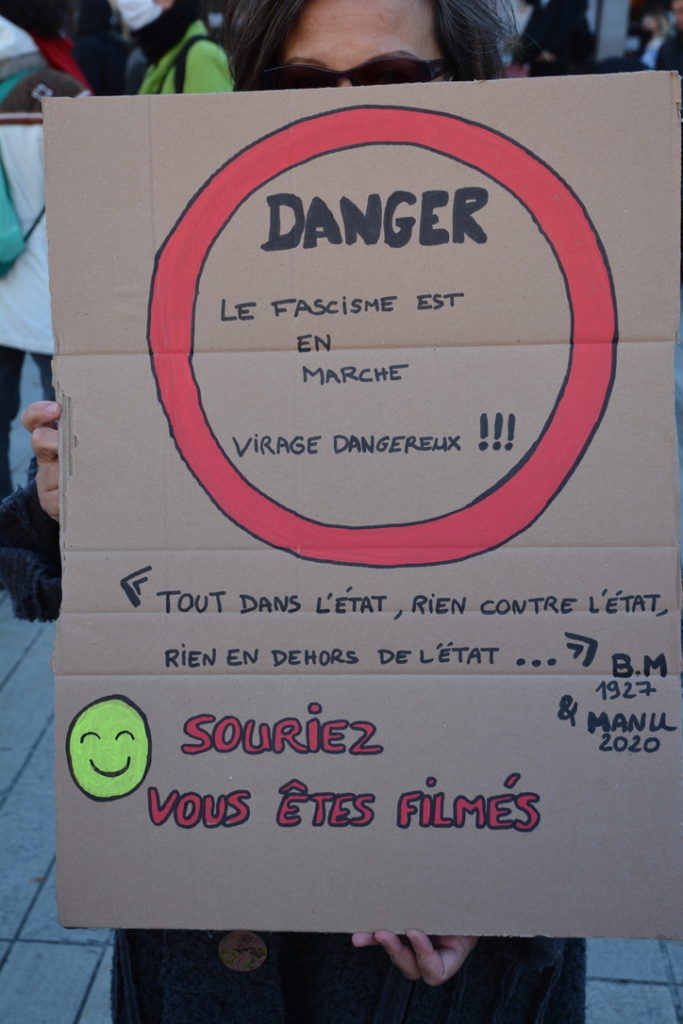 DANGER
LE FASCISME EST
EN
MARCHE
VIRAGE DANGEREUX !!!
« TOUT DANS L'ÉTAT, RIEN CONTRE L'ÉTAT,
RIEN EN DEHORS DE L'ÉTAT ... » B.M
1927
& MANU
2020
SOURIEZ
VOUS ÊTES FILMÉS